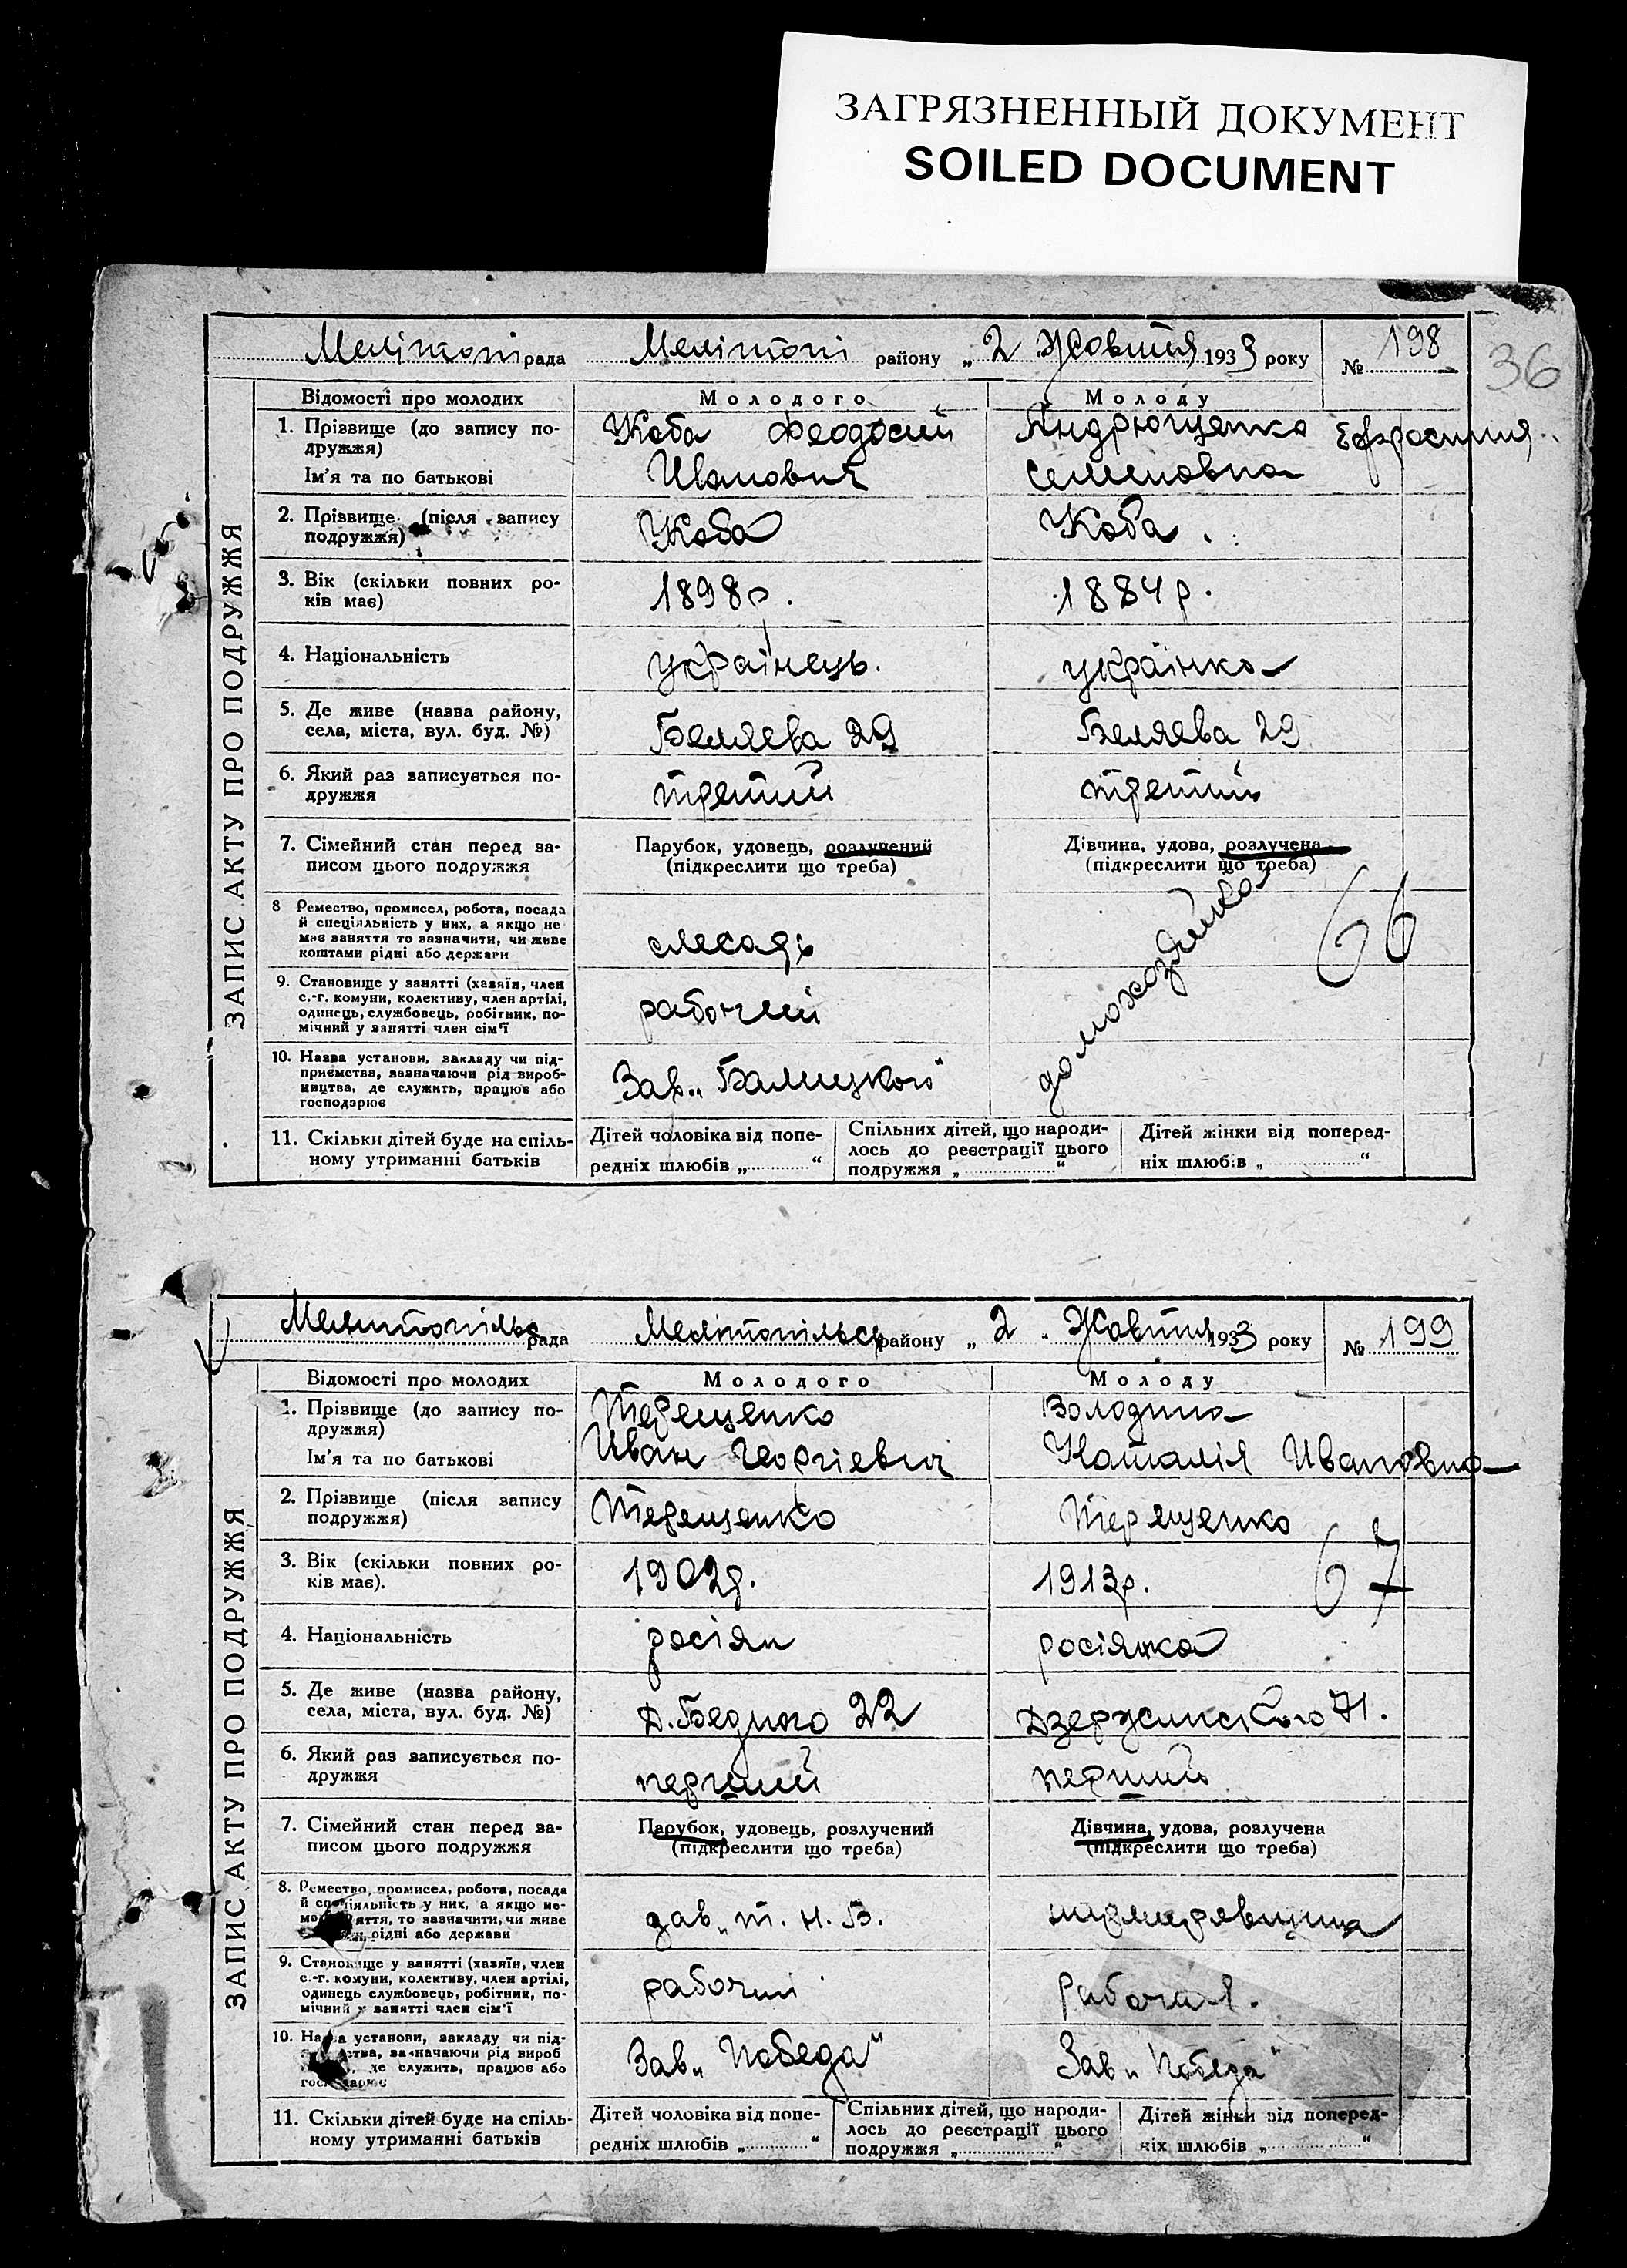 ЗАГРЯЗНЕННЫЙ ДОКУМЕНТ
SOILED DOCUMENT
36
Мелітопі рада Мелітопі району „ 2 Жовтня 1933 року № 198
ЗАПИС АКТУ ПРО ПОДРУЖЖЯ
Відомості про молодих Молодого Молоду
1. Прізвище (до запису подружжя)
Ім'я та по батькові
Коба Феодосий
Иванович
Андрющенко Ефросиния
Семеновна
2. Прізвище (після запису
подружжя)
Коба
Коба
3. Вік (скільки повних ро-
ків має)
1898р.
1884р.
4. Національність
українець.
українка
5. Де живе (назва району,
села, міста, вул. буд. №)
Беляева 29
Беляева 29
6. Який раз записується по-
дружжя
третий
третий
7. Сімейний стан перед за-
писом цього подружжя
Парубок, удовець, розлучений
(підкреслити що треба)
Дівчина, удова, розлучена
(підкреслити що треба)
8 Ремество, промисел, робота, посада
й спеціяльність у них, а якщо не
має заняття то зазначити, чи живе
коштами рідні або держави
слесарь
домохозяйка
66
9. Становище у занятті (хазяїн, член
с.-г. комуни, колективу, член артілі,
одинець, службовець, робітник, по-
мічний у занятті член сім'ї
рабочий
10. Назва установи, закладу чи під-
приємства, зазначаючи рід вироб-
ництва, де служить, працює або
господарює
Зав. „Балицкого"
11. Скільки дітей буде на спіль-
ному утриманні батьків
Дітей чоловіка від попе-
редніх шлюбів „ “
Спільних дітей, що народи-
лось до реєстрації цього
подружжя „ “
Дітей жінки від поперед-
ніх шлюбів „ “
Мелитопільс рада Мелітопільск району „ 2 Жовтня 1933 року № 199
ЗАПИС АКТУ ПРО ПОДРУЖЖЯ
Відомості про молодих Молодого Молоду
1. Прізвище (до запису по-
дружжя)
Ім'я та по батькові
Терещенко
Иван Георгіевич
Володина
Наталія Ивановна
2. Прізвище (після запису
подружжя)
Терещенко
Терещенко
3. Вік (скільки повних ро-
ків має).
1902р.
1913р.
67
4. Національність
росіян
росіянка
5. Де живе (назва району,
села, міста, вул. буд. №)
Д. Бедного 22
Дзержинского 71.
6. Який раз записується по-
дружжя
перший
перший
7. Сімейний стан перед за-
писом цього подружжя
Парубок, удовець, розлучений
(підкреслити що треба)
Дівчина, удова, розлучена
(підкреслити що треба)
8. Ремество, промисел, робота, посада
й спеціяльність у них, а якщо не-
має заняття, то зазначити, чи живе
рідні або держави
зав. т. н. б.
9. Становище у занятті (хазяїн, член
с.-г. комуни, колективу, член артілі,
одинець службовець, робітник, по-
мічний у занятті член сім'ї
рабочий
Рабочая.
10. Назва установи, закладу чи під-
приємства, зазначаючи рід вироб
де служить, працює або
господарює
Зав „Победа"
Зав „Победа"
11. Скільки дітей буде на спіль-
ному утриманні батьків
Дітей чоловіка від попе-
редніх шлюбів „ “
Спільних дітей, що народи-
лось до реєстрації цього
подружжя „ “
Дітей жінки від поперед-
ніх шлюбів „ “